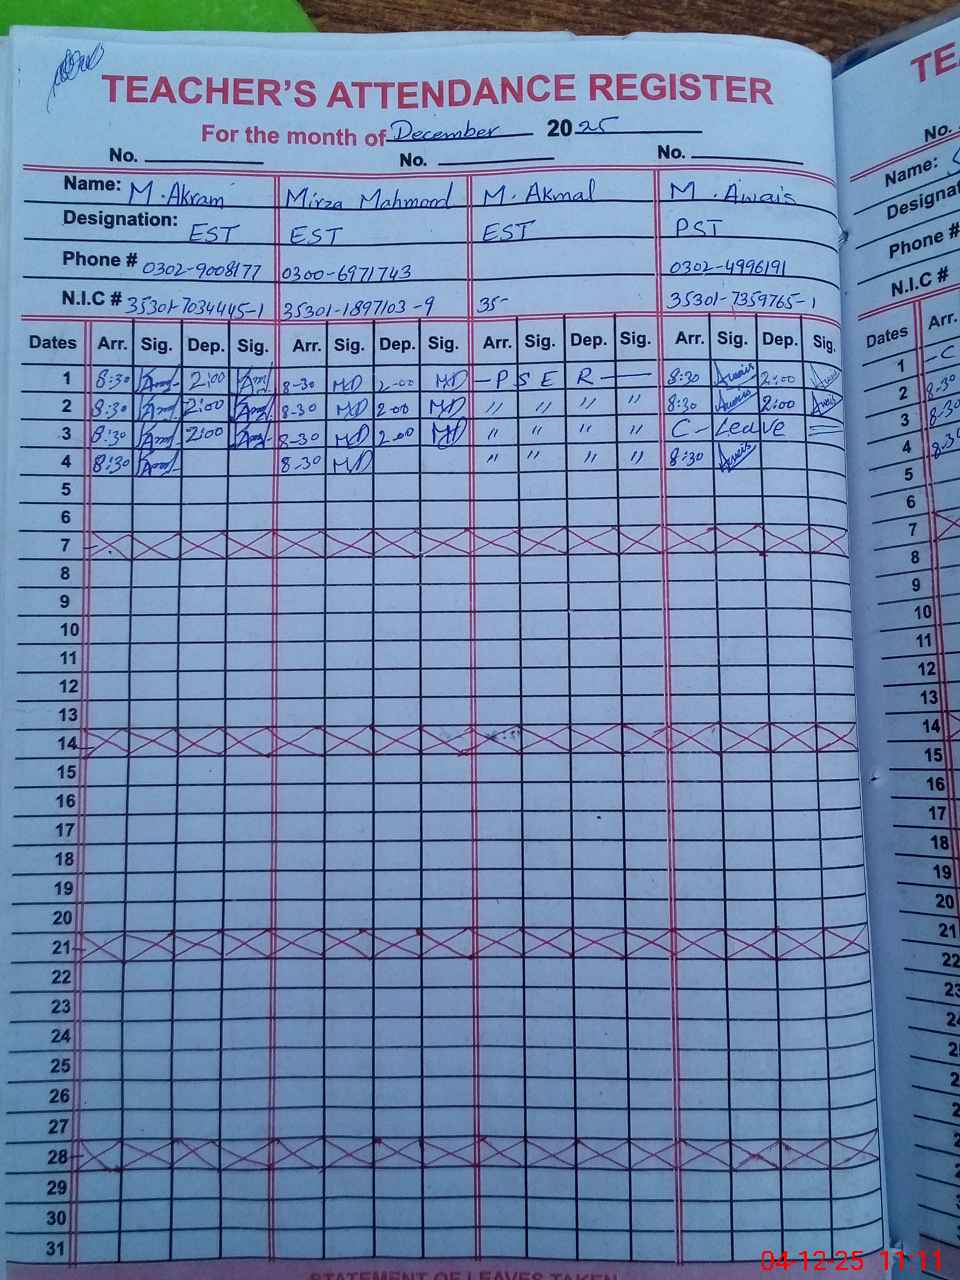 TEACHER'S ATTENDANCE REGISTER
For the month of December 2025
No. No. No.
Name: M. Akram Mirza Mahmood M. Akmal M. Awais
Designation: EST EST EST PST
Phone # 0302-9008177 0300-6971743 0302-4996191
N.I.C # 35301-7034445-1 35301-1897103-9 35- 35301-7359765-1
Dates Arr. Sig. Dep. Sig. Arr. Sig. Dep. Sig. Arr. Sig. Dep. Sig. Arr. Sig. Dep. Sig.
1 8:30 2:00 8-30 MD 2-00 MD — P S E R — 8:30 Awais 2:00 Awais
2 8:30 2:00 8-30 MD 2-00 MD " " " " 8:30 Awais 2:00 Awais
3 8:30 2:00 8-30 MD 2-00 MD " " " " C - Leave
4 8:30 8-30 MD " " " " 8:30 Awais
5
6
7
8
9
10
11
12
13
14
15
16
17
18
19
20
21
22
23
24
25
26
27
28
29
30
31
STATEMENT OF LEAVES TAKEN
TE
No.
Name:
Designat
Phone #
N.I.C #
Dates Arr.
1 - C
2 8-30
3 8-30
4 8-30
5
6
7
8
9
10
11
12
13
14
15
16
17
18
19
20
21
22
23
24
04-12-25 11:11